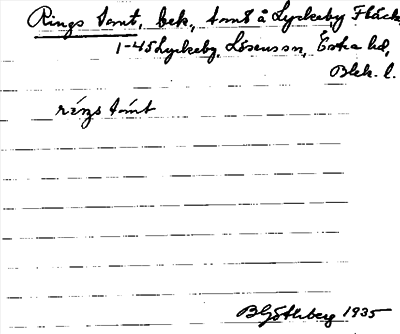 Rings tomt, bek., tomt å Lyckeby Fläck,
1-45 Lyckeby, Lösens sn, Östra hd,
Blek. l.
rıŋs tómt
B Göthberg 1935